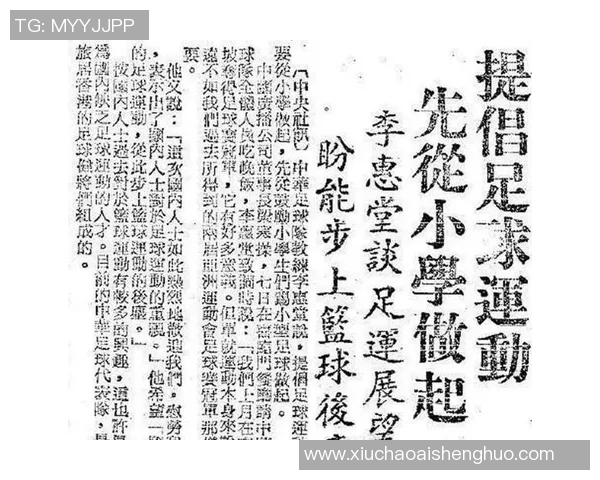 TG: MYYJJPP
提倡足球運動
先從小學做起
李惠堂談足運展望
盼能步上籃球後
〔中央社訊〕中華足球隊敎練李惠堂說，提倡足球運
要從小學做起，先從鼓勵小學生們踢小型足球做起。
中國廣播公司董事長梁寒操，七日在
球隊全體人員吃晚飯，李惠堂致詞時說：「我們上月在
坡奪得足球賽冠軍，它有好多意義。但單就運動本身來說
遠不如我們過去所得到的兩屆亞洲運動會足球賽冠軍那樣
要。
他又說：「這次國內人士如此熱烈地歡迎我們，慰勞
，表示出了國內人士對於足球運動的重視。」他希望「
的足球運動，從此步上籃球運動的後塵。」
按國內人士過去對於籃球運動有較多的興趣，這也許
爲國內缺乏足球運動的人才。目前的中華足球代表隊，是
旅居香港的足球健將們組成的。
www.xiuchaoaishenghuo.com